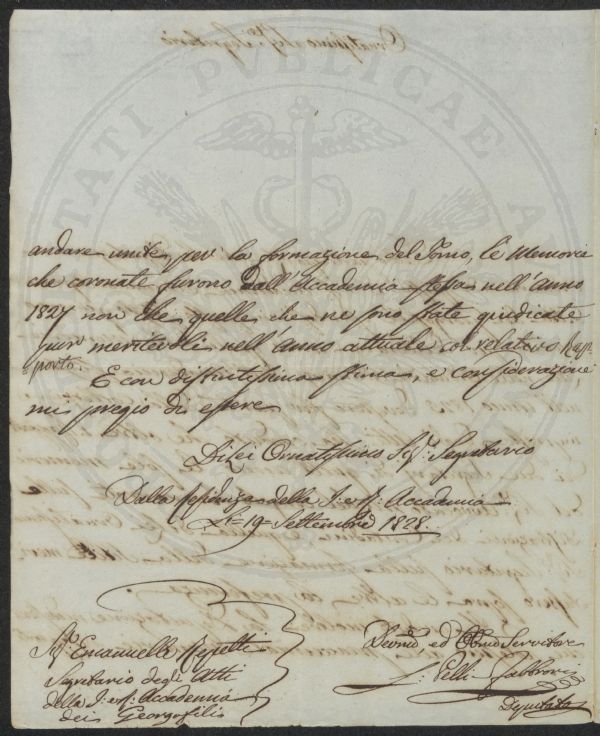 andare unite per la formazione del Tomo, le Memorie
che coronate furono dall'Accademia stessa nell'Anno
1827 non che quelle, che ne sono state giudicate
pur meritevoli nell'anno attuale con relativo Rap-
porto.
E con distintissima stima, e considerazione
mi pregio di essere
Di Lei Ornatissimo Sigr. Segretario
Dalla Residenza della I. e R. Accademia
Li 19 Settembre 1828.
Sigr. Emanuelle Repetti
Segretario degli Atti
della I. e R. Accademia
dei Georgofili
Devmo ed Obbmo Servitore
L. Pelli Fabbroni
Deputato
TATI PUBLICAE